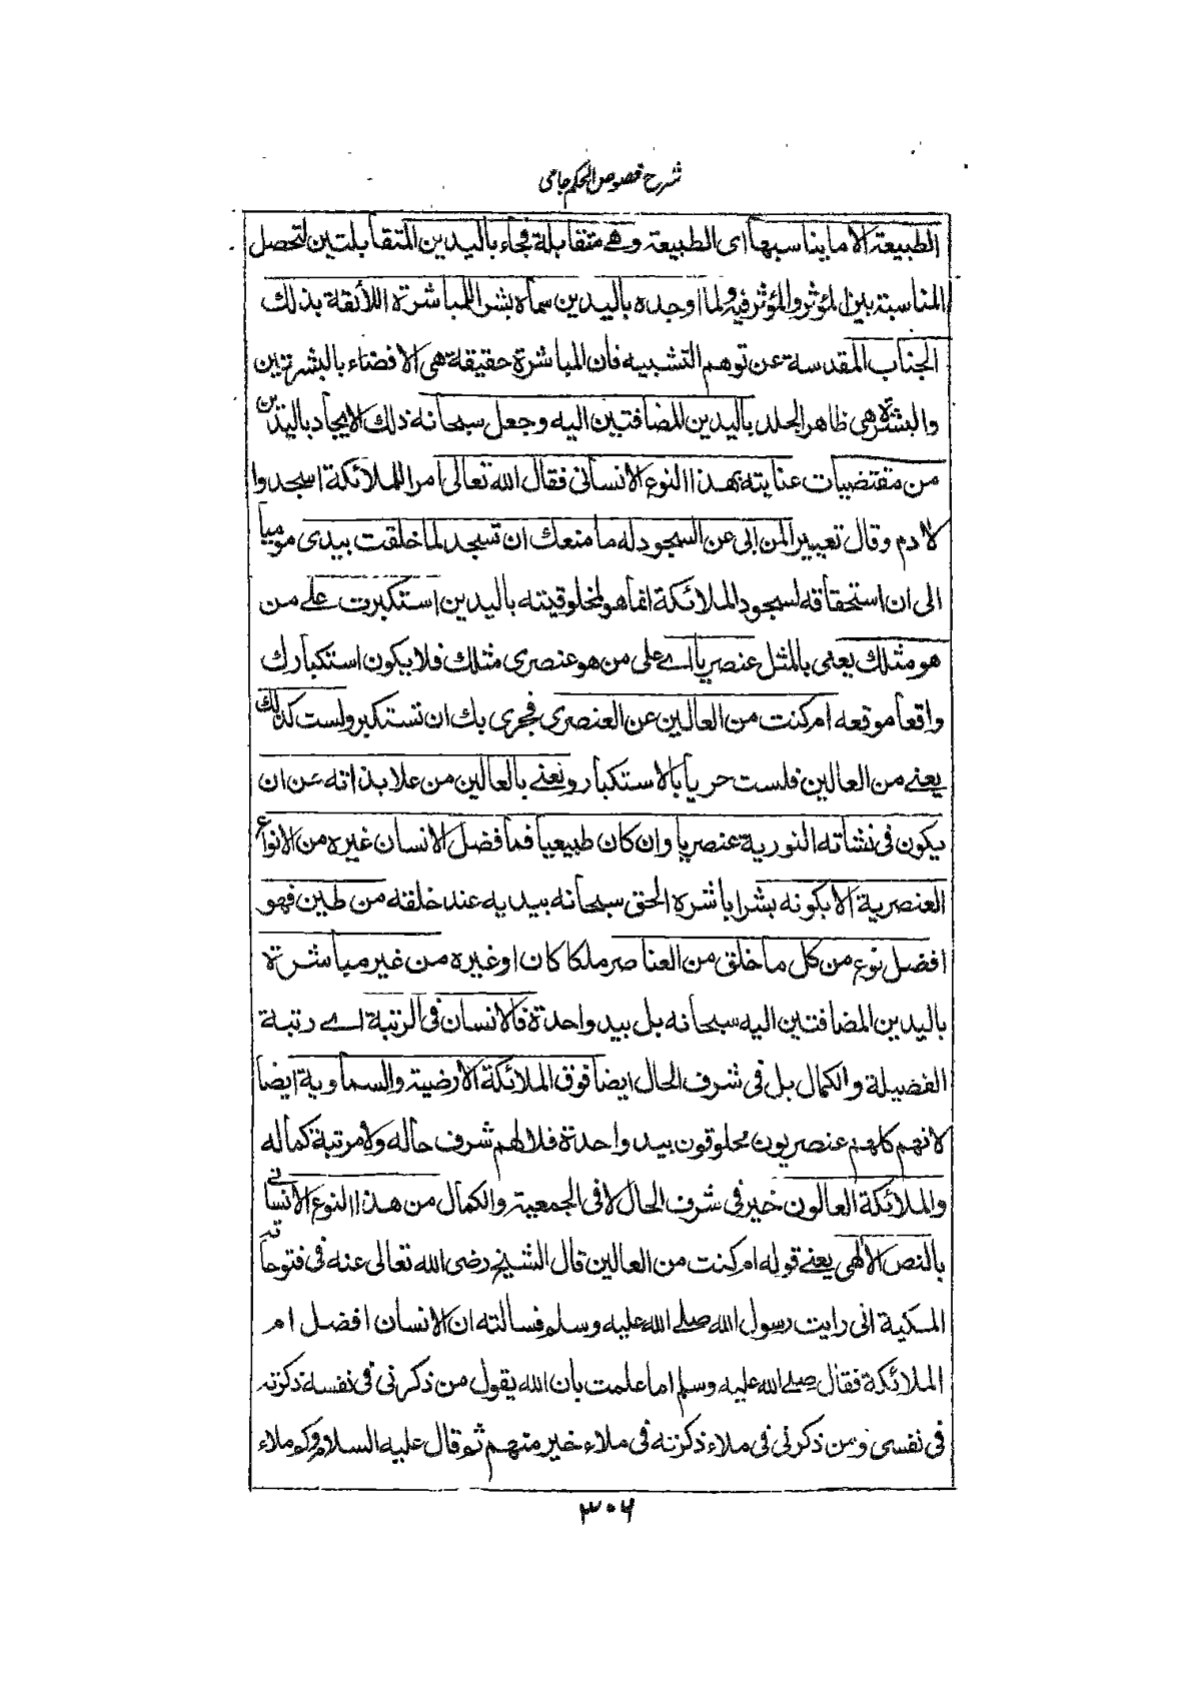 شرح فصوص الحکم جامی
الطبیعة الا ما یناسبها ای الطبیعة وهی متقابلة فجاء بالیدین المتقابلتین لتحصل
المناسبة بین المؤثر والمؤثر فیه ولما اوجده بالیدین سماه بشرا للمباشرة اللائقة بذلك
الجناب المقدسة عن توهم التشبیه فان المباشرة حقیقة هی الافضاء بالبشرتین
والبشرة هی ظاهر الجلد بالیدین المضافتین الیه وجعل سبحانه ذلك الایجاد بالیدین
من مقتضیات عنایته بهذا النوع الانسانی فقال الله تعالی امرا للملائکة اسجدوا
لادم وقال تعییرا لمن ابی عن السجود له ما منعك ان تسجد لما خلقت بیدی مومیاً
الی ان استحقاقه لسجود الملائکة انما هو لمخلوقیته بالیدین استکبرت علی من
هو مثلك یعنی بالمثل عنصریا ای علی من هو عنصری مثلك فلا یکون استکبارك
واقعا موقعه ام کنت من العالین عن العنصری فجری بك ان تستکبر ولست کذلك
یعنی من العالین فلست حریا بالاستکبار ونعنی بالعالین من علا بذاته عن ان
یکون فی نشاته النوریة عنصریا وان کان طبیعیا فما فضل الانسان غیره من الانواع
العنصریة الا بکونه بشرا باشره الحق سبحانه بیدیه عند خلقه من طین فهو
افضل نوع من کل ما خلق من العناصر ملکا کان او غیره من غیر مباشرة
بالیدین المضافتین الیه سبحانه بل بید واحدة فالانسان فی الرتبة ای رتبة
الفضیلة والکمال بل فی شرف الحال ایضا فوق الملائکة الارضیة والسماویة ایضا
لانهم کلهم عنصریون مخلوقون بید واحدة فلا لهم شرف حاله ولا مرتبة کماله
والملائکة العالون خیر فی شرف الحال لا فی الجمعیة والکمال من هذا النوع الانسانی
بالنص الالهی یعنی قوله ام کنت من العالین قال الشیخ رضی الله تعالی عنه فی فتوحاته
المکیة انی رایت رسول الله صلی الله علیه وسلم فسالته ان الانسان افضل ام
الملائکة فقال صلی الله علیه وسلم اما علمت بان الله یقول من ذکرنی فی نفسه ذکرته
فی نفسی ومن ذکرنی فی ملاء ذکرته فی ملاء خیر منهم ثم قال علیه السلام وکم ملاء
۳۰۶